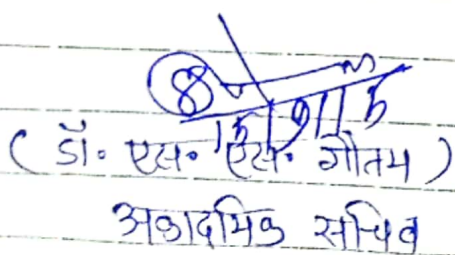 (डॉ. एस. एस. गौतम)
अकादमिक सचिव